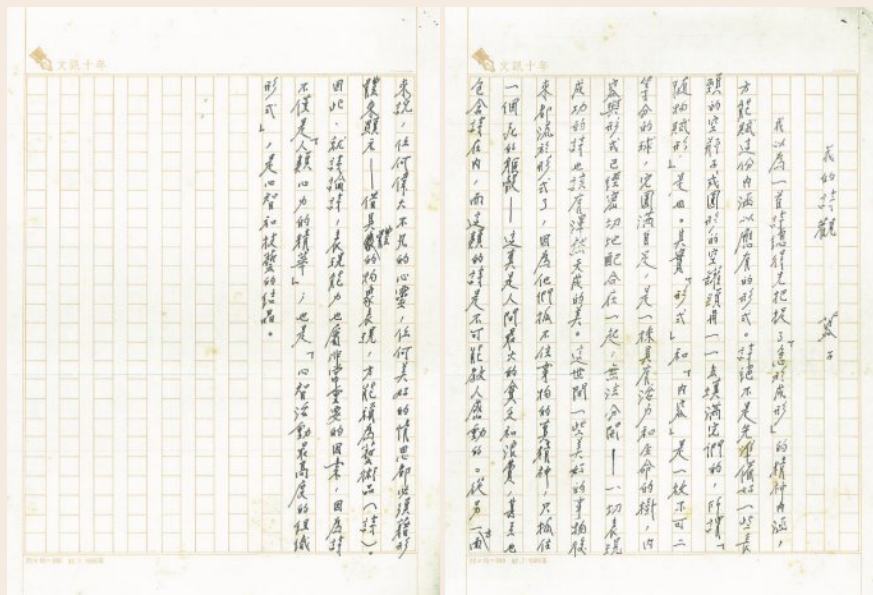 文訊十年
我的詩觀 蓉子
我以為一首詩總得先把握了「意形成形」的精神內涵,
方能賦這份內涵以應有的形式。詩絕不是先準備好一些長
頸的空瓶子或圓形的空罐頭再一一去填滿它們的,所謂「
隨物賦形」是也。其實「形式」和「內容」是一枚不可二
等分的球,它圓滿自足,是一棵具有活力和生命的樹,內
容與形式已經密切地配合在一起,無法分開——一切表現
成功的詩也該有渾然天成的美。這世間一些美好的事物後
來都流於形式了,因為他們抓不住事物的真精神,只抓住
一個死的軀殼——這真是人間最大的貧乏和浪費,甚至也
包含詩在內,而這類的詩是不可能教人感動的。從另一面
文訊十年
來說,任何偉大不凡的心靈,任何美好的情思都必須藉形
體來顯示——借具體的物象表現,方能稱為藝術品(詩)。
因此,就詩論詩,表現能力也屬非常重要的因素,因為詩
不僅是「人類心力的精華」,也是「心智活動最高度的組織
形式」,是心智和技藝的結晶。